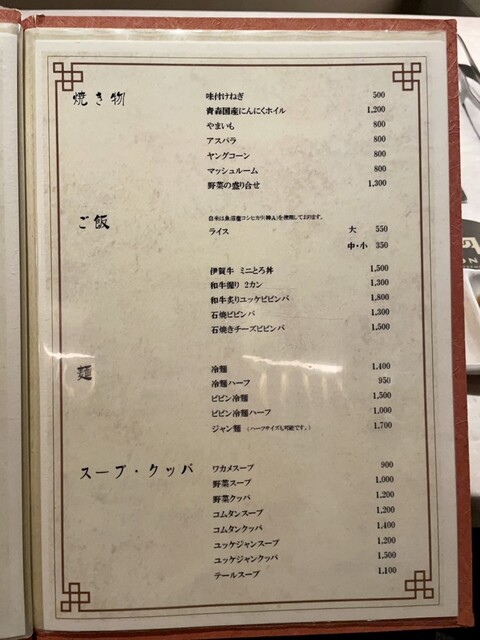 焼き物
味付けねぎ 500
青森国産にんにくホイル 1,200
やまいも 800
アスパラ 800
ヤングコーン 800
マッシュルーム 800
野菜の盛り合せ 1,300
ご飯
白米は魚沼産コシヒカリ(特A)を使用しております。
ライス 大 550
中・小 350
伊賀牛 ミニとろ丼 1,500
和牛握り 2カン 1,300
和牛炙りユッケビビンバ 1,800
石焼ビビンバ 1,300
石焼きチーズビビンバ 1,500
麺
冷麺 1,400
冷麺ハーフ 950
ビビン冷麺 1,500
ビビン冷麺ハーフ 1,000
ジャン麺 (ハーフサイズも可能です。) 1,700
スープ・クッパ
ワカメスープ 900
野菜スープ 1,000
野菜クッパ 1,200
コムタンスープ 1,200
コムタンクッパ 1,400
ユッケジャンスープ 1,200
ユッケジャンクッパ 1,500
テールスープ 1,100